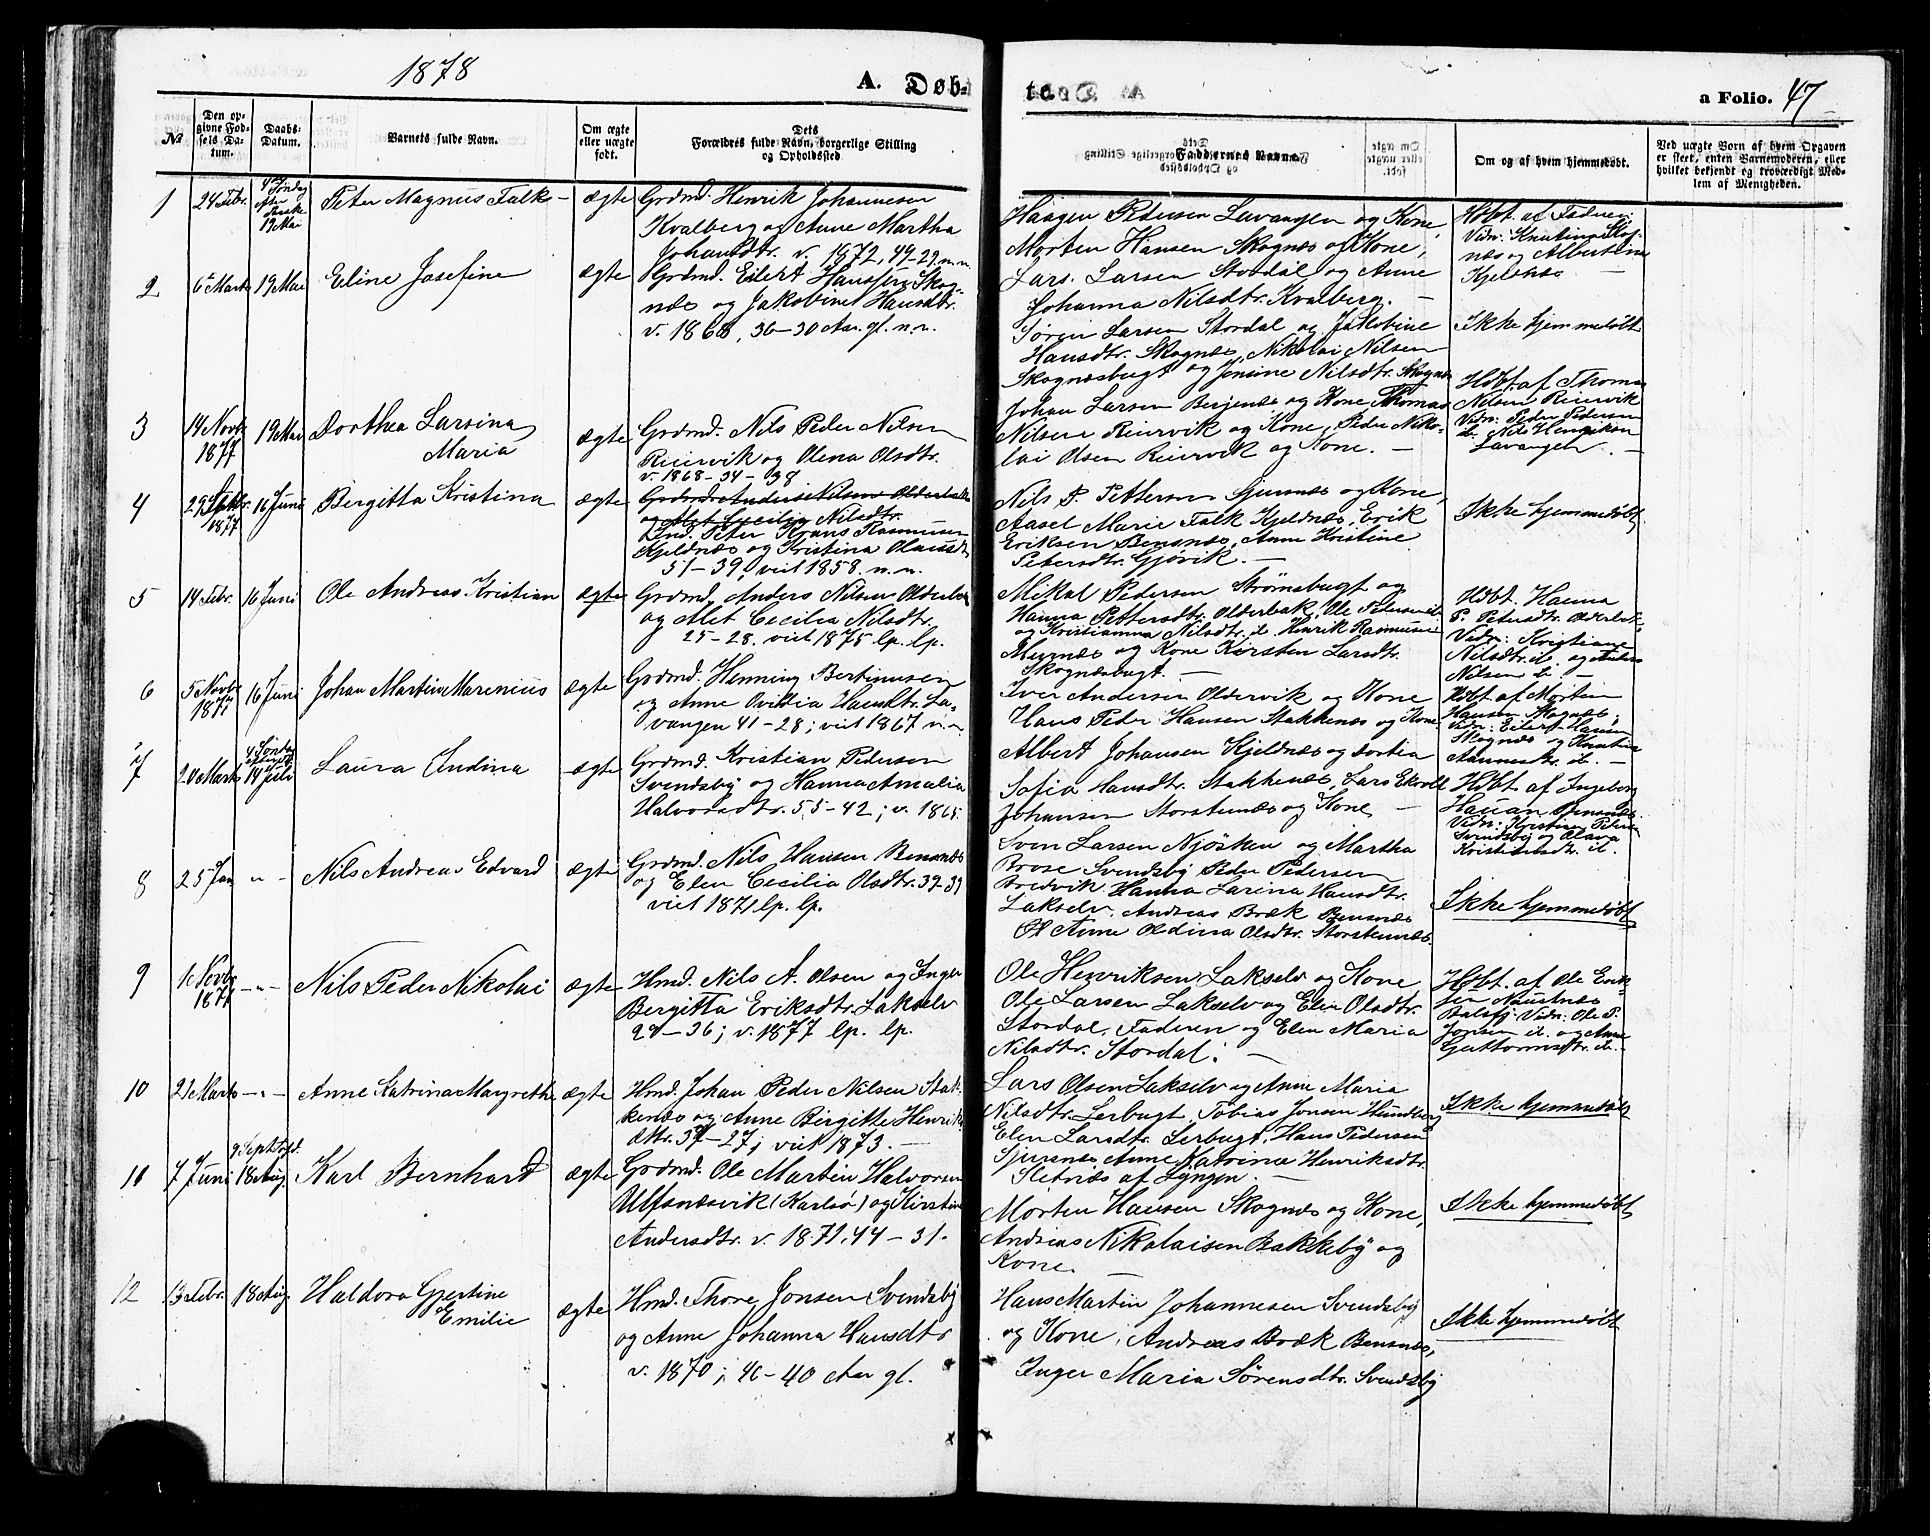 1878
A. Døb-
te.
a Folio. 47
№
Den op-
givne Fød-
sels Da-
tum.
Daabs-
Datum.
Barnets fulde Navn.
Om ægte
eller uægte
født.
Dets
Forældres fulde Navn, borgerlige Stilling
og Opholdssted
Faddernes Navne.
Om og af hvem hjemmedøbt.
Ved uægte Børn af hvem Opgaven
er skeet, enten Barnemoderen, eller
hvilket bekjendt og troværdigt Med-
lem af Menigheden.
1
24 Febr.
4 Søndag
efter
Paaske
19 Mai
Peter Magnus Falk
ægte
Grdmd. Henrik Johannesen
Kvalberg og Anne Martha
Johansdtr. v. 1872, 49-29. n. n.
Haagen Pedersen Lavangen og Kone,
Morten Hansen Skognæs og Kone,
Lars Larsen Stordal og Anne
Johanna Nilsdtr. Kvalberg. —
Hdbt. af Faderen
Vidn: Knutina Skog-
næs og Albertina
Kjelsnæs
2
6te Marts
19 Mai
Eline Josefine
ægte
Grdmd. Eilert Hanssen Skog-
næs og Jakobine Hansdtr.
v. 1868, 36-30 Aar. gl. n. n.
Søren Larsen Stordal og Jakobine
Hansdtr. Skognæs, Nikolai Nilsen
Skognæsbugt og Jenine Nilsdtr. Skognæs
Ikke hjemmedøbt
3
14 Novbr.
1877
19 Mai
Dorthea Larsina
Maria
ægte
Grdmd. Nils Peder Nilsen
Reiervik og Olena Olsdtr.
v. 1868-34-38
Johan Larsen Berjenæs og Kone, Thomas
Nilsen Reiervik og Kone, Peder Niko-
lai Olsen Reiervik og Kone. —
Hdbt. af Thomas
Nilsen Reiervik
Vidn: Peder Pedersen
ib. Nils Henriksen
Lavangen. —
4
29 Septbr.
1877
16 Juni
Bergitta Kristina
ægte
Grdmd. Anders Nilsen Olderbak
og Alet Cecilia Nilsdtr.
Ind. Peter Krans Rasmussen
Kjeldnæs og Kristina Olausdtr.
51-39, viet 1858. n. n.
Nils P. Pettersen Sjursnæs og Kone,
Aasel Marie Falk Kjeldnæs, Erik
Eriksen Bensnæs, Anne Kristine
Petersdtr. Gjövik. —
Ikke hjemmedøbt
5
14 Febr.
16 Juni
Ole Andreas Kristian
ægte
Grdmd. Anders Nilsen Olderbak
og Alet Cecilia Nilsdtr.
25-28. viet 1875 lp. lp.
Mikal Pedersen Strømsbugt og
Hanna Pettersdtr. Olderbak, Ole Pedersen ib.
og Kristianna Nilsdtr. ib. Henrik Rasmussen
og Kone Kirsten Larsdtr.
Skognæsbugt. —
Hdbt. Hanna
P. Petersdtr. Olderbak
Vidn: Kristiane
Nilsdtr. ib. og Anders
Nilsen ib. —
6
5 Novbr.
1877
16 Juni
Johan Martin Marenius
ægte
Grdmd. Henning Bertinusen
og Anne Ovidia Hansdtr. La-
vangen 41-28; viet 1867 n. n.
Iver Andersen Oldervik og Kone
Hans Peder Hansen Stakkenæs og Kone
Albert Johansen Kjeldnæs og Dortia
Sofia Hansdtr. Stakkenæs
Hdbt. af Morten
Hansen Skognæs,
Vidn: Eilert Hansen
Skognæs og Knutina
ib. —
7
20 Marts
4 Søndag
14 Juli
Laura Indina
ægte
Grdmd. Kristian Pedersen
Svendsby og Hanna Amalia
Halvorsdtr. 55-42; v. 1865.
Lars Ekrold
Johansen Storstenæs og Kone —
Sven Larsen Njösken og Martha
Brose Svendsby
Hdbt. af Ingeborg
Hansen Bensnæs.
Vidn: Kristian Pedersen
Svendsby og Olava
Kristiansdtr. ib.
8
25 Jan
" -
Nils Andreas Edvard
ægte
Grdmd. Nils Hansen Bensnæs
og Elen Cecilia Olsdtr. 39-31
viet 1871 lp. lp.
Peder Pedersen
Bredvik, Hanna Larina Hansdtr.
Lakselv, Andreas Bræk Bensnæs
Anne Oldina Olsdtr. Storstennæs.
Ikke hjemmedøbt
9
1877
- " -
Nils Peder Nikolai
ægte
Hmd. Nils A. Olsen og Inger
Bergitta Eriksdtr. Lakselv
29-36; v. 1877 lp. lp.
Ole Henriksen Lakselv og Kone,
Ole Larsen Lakselv og Elen Olsdtr.
Stordal, Faderen og Elen Maria
Nilsdtr. Stordal. —
Hdbt. af Ole Erik-
sen Naustnæs
Balsfj. Vidn. Ole P.
Jonsen ib. og Anne
Guttormsdtr. ib. —
10
21 Marts
- " -
Anne Katrina Margrethe
ægte
Hmd. Johan Peder Nilsen Stak-
kenæs og Anne Birgitte Henrik-
sdtr. 37-27; viet 1873. —
Lars Olsen Lakselv og Anne Maria
Nilsdtr. Lerbugt, Tobias Jonsen Hundberg
Elen Larsdtr. Lerbugt, Hans Pedersen
Sjursnæs Anne Katrina Henriksdtr.
Sletnæs af Lyngen. —
Ikke hjemmedøbt
11
7 Juni
9 Septbr.
18 Aug.
Karl Bernhard
ægte
Grdmd. Ole Martin Halvorsen
Ulfsnæsvik (Karlsø) og Kirstine
Andersdtr. v. 1871. 44-31.
Morten Hansen Skognæs og Kone,
Andreas Nikolaisen Bakkeby og
Kone.
Ikke hjemmedøbt
12
13 Febr.
18 Aug.
Haldora Gjertine
Emilie
ægte
Hmd. Thore Jonsen Svendsby
og Anne Johanna Hansdtr
v. 1870; 46-40 Aar gl.
Hans Martin Johannesen Svendsby
og Kone, Andreas Bræk Bensnæs,
Inger Maria Sørensdtr. Svendsby
Ikke hjemmedøbt